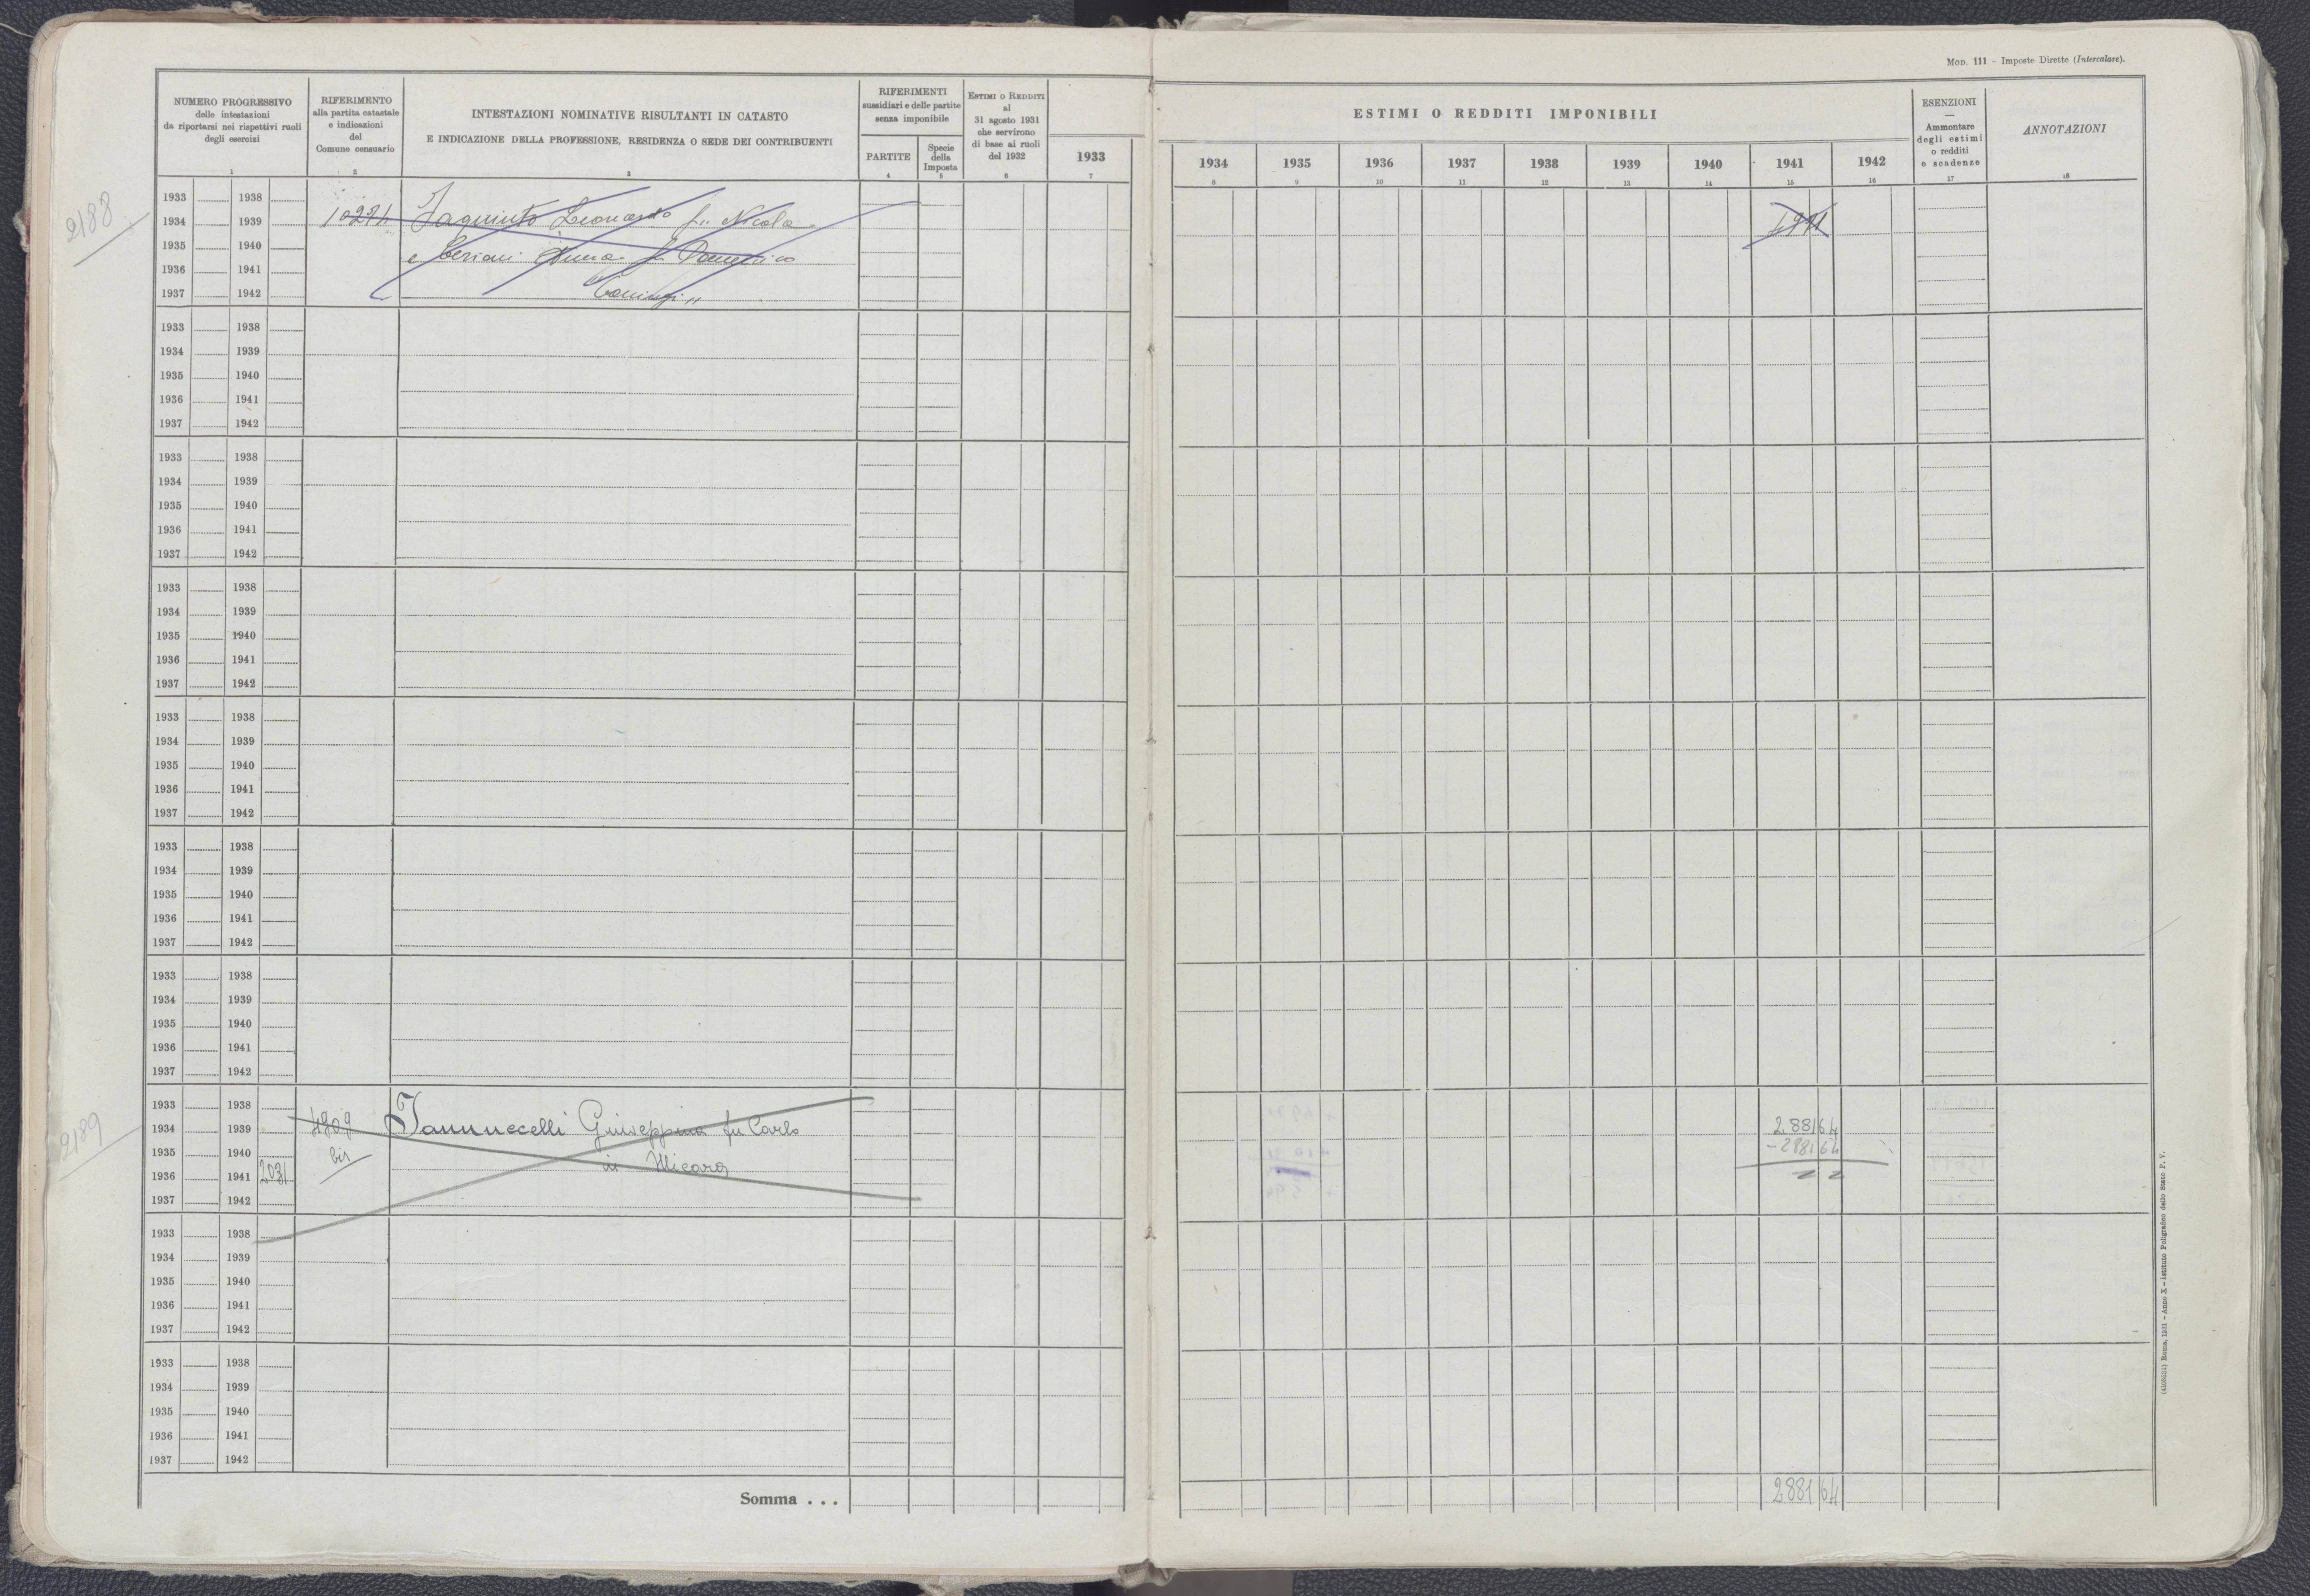 MOD. 111 – Imposte Dirette (Intercalare).
NUMERO PROGRESSIVO
delle intestazioni
da riportarsi nei rispettivi ruoli
degli esercizi
1
RIFERIMENTO
alla partita catastale
e indicazioni
del
Comune censuario
2
INTESTAZIONI NOMINATIVE RISULTANTI IN CATASTO
E INDICAZIONE DELLA PROFESSIONE, RESIDENZA O SEDE DEI CONTRIBUENTI
3
RIFERIMENTI
sussidiari e delle partite
senza imponibile
PARTITE
4
Specie
della
Imposta
5
ESTIMI O REDDITI
al
31 agosto 1931
che servirono
di base ai ruoli
del 1932
6
1933
7
ESTIMI O REDDITI IMPONIBILI
1934 1935 1936 1937 1938 1939 1940 1941 1942
8 9 10 11 12 13 14 15 16
ESENZIONI
—
Ammontare
degli estimi
o redditi
e scadenze
17
ANNOTAZIONI
18
2188
1933 1938
1934 1939 Iaquinto Leonardo fu Nicola
1935 1940
1936 1941 fu Domenico
1937 1942 Coniugi
1933 1938
1934 1939
1935 1940
1936 1941
1937 1942
1933 1938
1934 1939
1935 1940
1936 1941
1937 1942
1933 1938
1934 1939
1935 1940
1936 1941
1937 1942
1933 1938
1934 1939
1935 1940
1936 1941
1937 1942
1933 1938
1934 1939
1935 1940
1936 1941
1937 1942
1933 1938
1934 1939
1935 1940
1936 1941
1937 1942
2189
1933 1938
1934 1939 4809 Iannuccelli Giuseppina fu Carlo 2.881 64
1935 1940 bis in Micara – 2881 64
1936 1941 2031
1937 1942
1933 1938
1934 1939
1935 1940
1936 1941
1937 1942
1933 1938
1934 1939
1935 1940
1936 1941
1937 1942
Somma . . . 2881 64
Roma, 1931 – Anno X – Istituto Poligrafico dello Stato P. V.